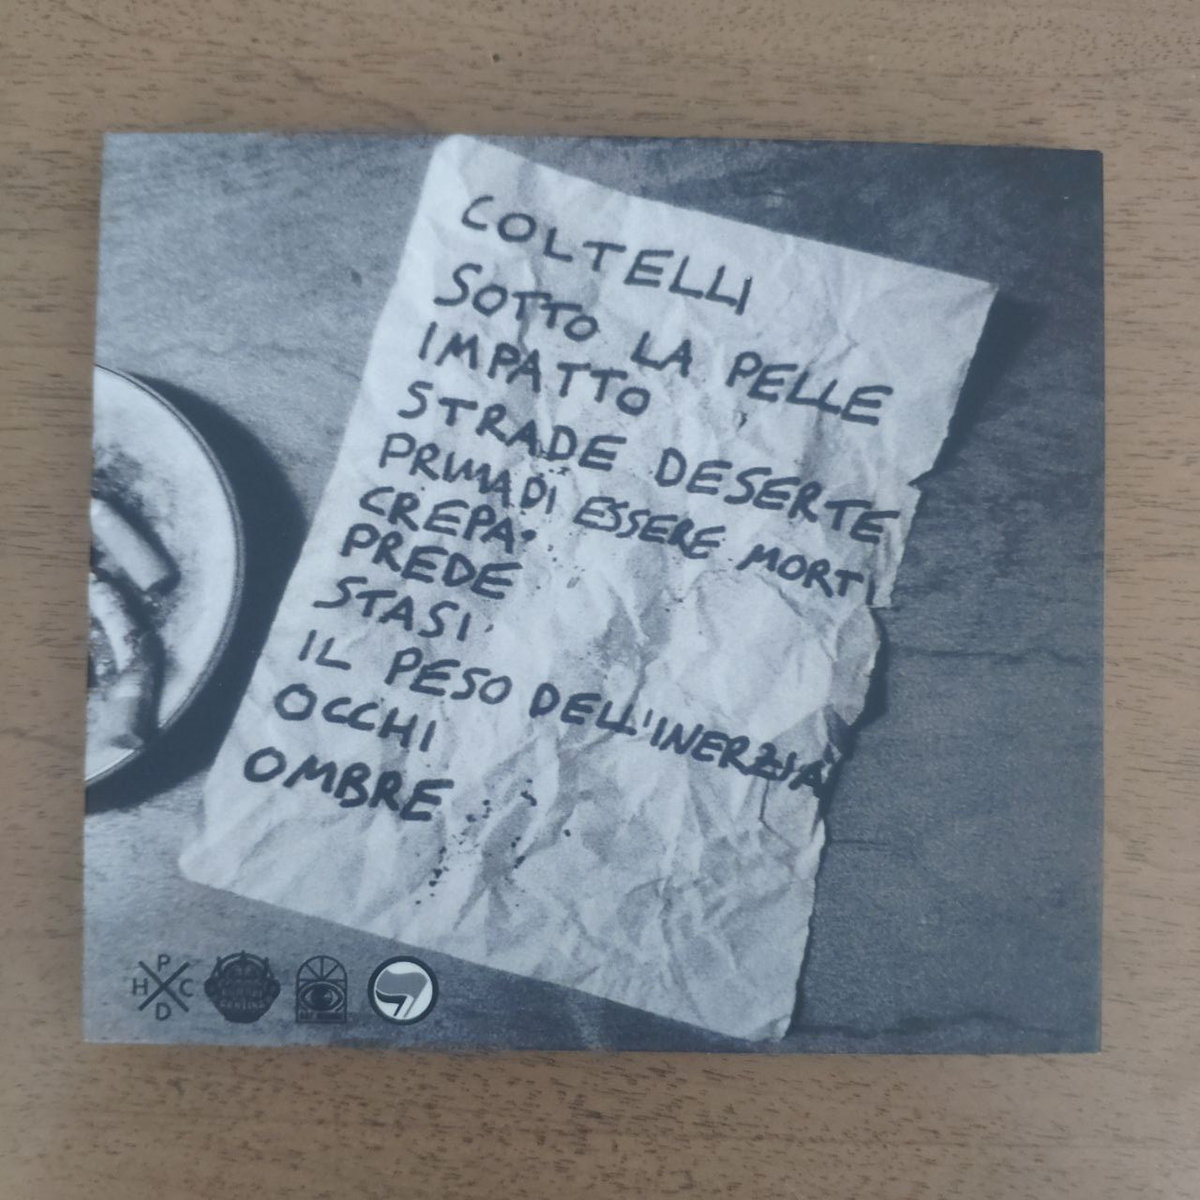 COLTELLI
SOTTO LA PELLE
IMPATTO
STRADE DESERTE
PRIMA DI ESSERE MORTI
CREPA
PREDE
STASI
IL PESO DELL'INERZIA
OCCHI
OMBRE
P
H C
D